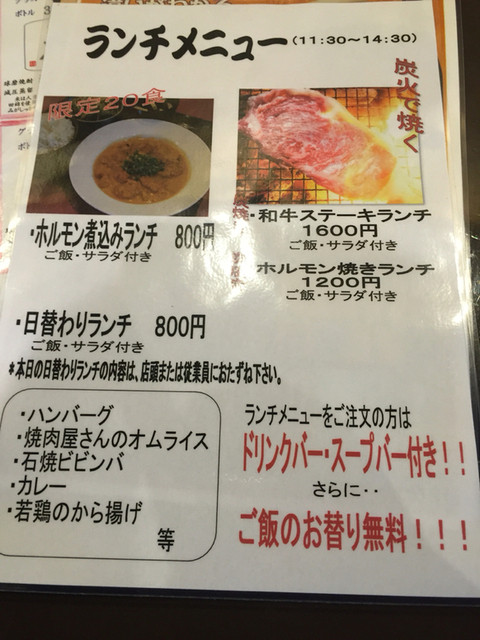 ランチメニュー(11:30～14:30)
限定20食
炭火で焼く
・ホルモン煮込みランチ 800円
ご飯・サラダ付き
・和牛ステーキランチ
1600円
ご飯・サラダ付き
ホルモン焼きランチ
1200円
ご飯・サラダ付き
・日替わりランチ 800円
ご飯・サラダ付き
＊本日の日替わりランチの内容は、店頭または従業員におたずね下さい。
・ハンバーグ
・焼肉屋さんのオムライス
・石焼ビビンバ
・カレー
・若鶏のから揚げ
等
ランチメニューをご注文の方は
ドリンクバー・スープバー付き！！
さらに・・
ご飯のお替り無料！！！